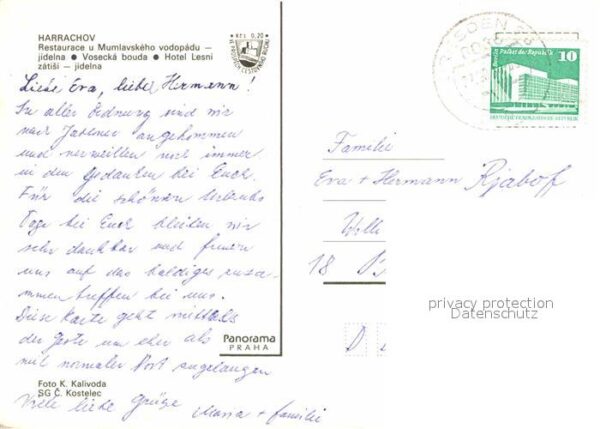 HARRACHOV
Restaurace u Mumlavského vodopádu –
jídelna ● Vosecká bouda ● Hotel Lesní
zátiší – jídelna
Kčs 0,20
Liebe Eva, lieber Hermann!
In aller Ordnung sind wir
nach angekommen
und verweilen noch immer
in den Gedanken bei Euch.
Für die schönen Urlaubs
Tage bei Euch bleiben wir
sehr dankbar und freuen
uns auf das baldige zusa-
mmentreffen bei uns.
Diese Karte geht mittels
der Gäste um eher als
mit normaler Post anzugelangen
Viele liebe Grüße Maria + familie
Foto K. Kalivoda
SG Č. Kostelec
Panorama
PRAHA
DRESDEN
10
Palast der Republik
DEUTSCHE DEMOKRATISCHE REPUBLIK
Familie
Eva + Hermann Rjaboff
18
D
privacy protection
Datenschutz